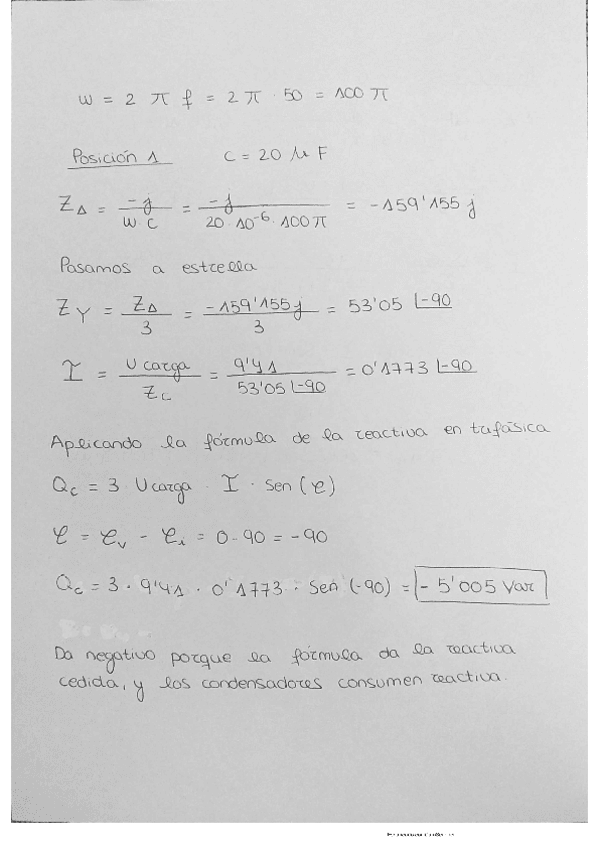 w = 2 π f = 2 π · 50 = 100 π
Posición 1 C = 20 μ F
Z_Δ = -j / (w C) = -j / (20 · 10^-6 · 100 π) = -159'155 j
Pasamos a estrella
Z_Y = Z_Δ / 3 = -159'155 j / 3 = 53'05 ∠-90
I = U carga / Z_C = 9'41 / 53'05 ∠-90 = 0'1773 ∠-90
Aplicando la fórmula de la reactiva en trifásica
Q_c = 3 · U carga · I · sen (φ)
φ = φ_v - φ_i = 0 - 90 = -90
Q_c = 3 · 9'41 · 0'1773 · sen (-90) = - 5'005 Var
Da negativo porque la fórmula da la reactiva
cedida, y los condensadores consumen reactiva.